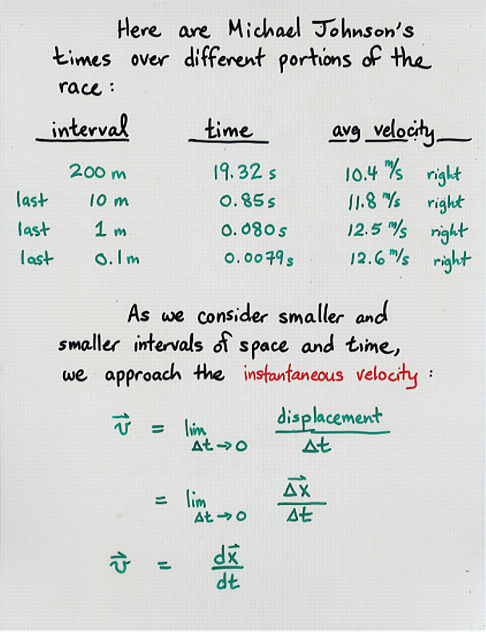 Here are Michael Johnson's
times over different portions of the
race:
interval time avg velocity
200 m 19.32 s 10.4 m/s right
last 10 m 0.85 s 11.8 m/s right
last 1 m 0.080 s 12.5 m/s right
last 0.1 m 0.0079 s 12.6 m/s right
As we consider smaller and
smaller intervals of space and time,
we approach the instantaneous velocity:
v⃗ = lim Δt→0 displacement / Δt
= lim Δt→0 Δx⃗ / Δt
v⃗ = dx⃗ / dt